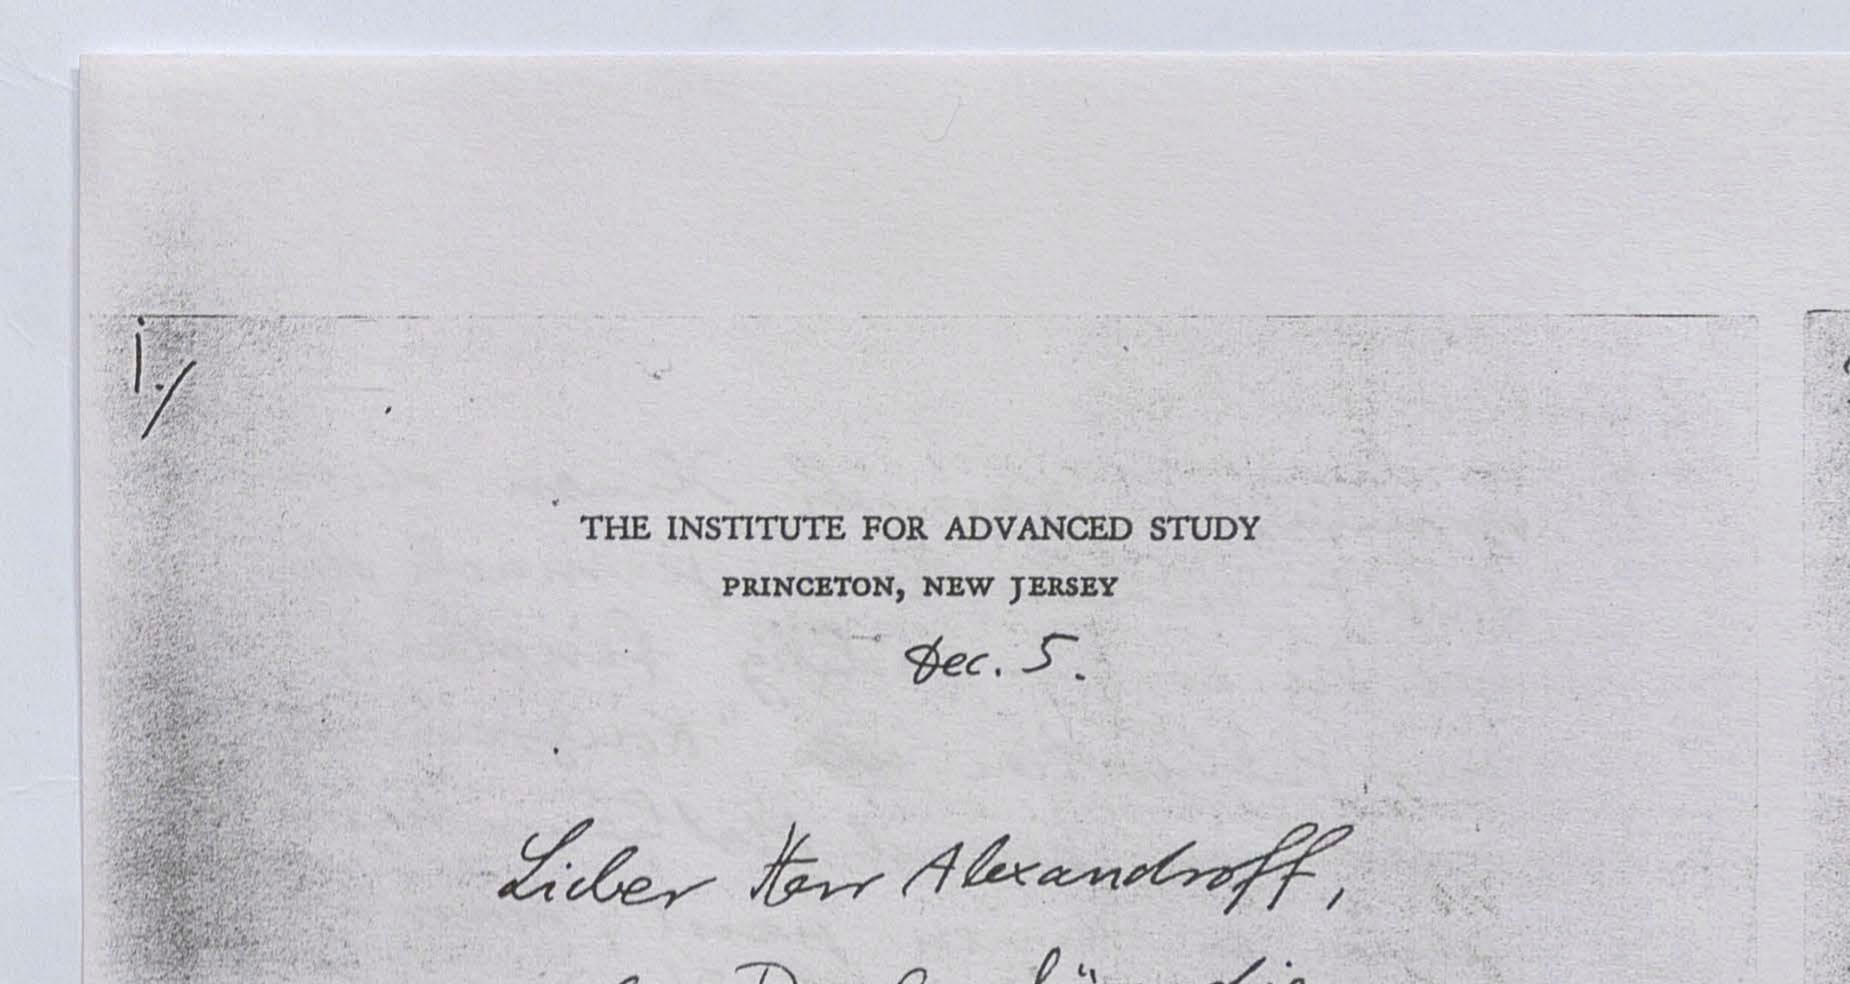 1./
THE INSTITUTE FOR ADVANCED STUDY
PRINCETON, NEW JERSEY
Dec. 5.
Lieber Herr Alexandroff,